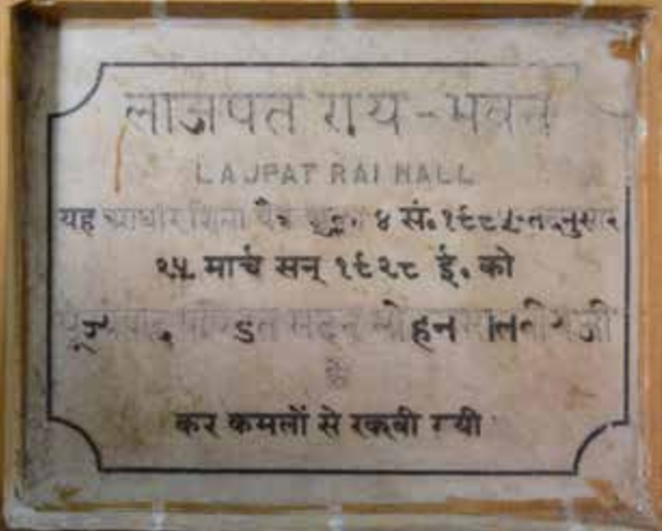 लाजपत राय - भवन
LAJPAT RAI HALL
यह आधारशिला चैत्र शुक्ल ४ सं. १९८५ तदनुसार
२५ मार्च सन् १९२८ ई. को
पूज्यपाद पण्डित मदन मोहन मालवीयजी
के
कर कमलों से रक्खी गयी